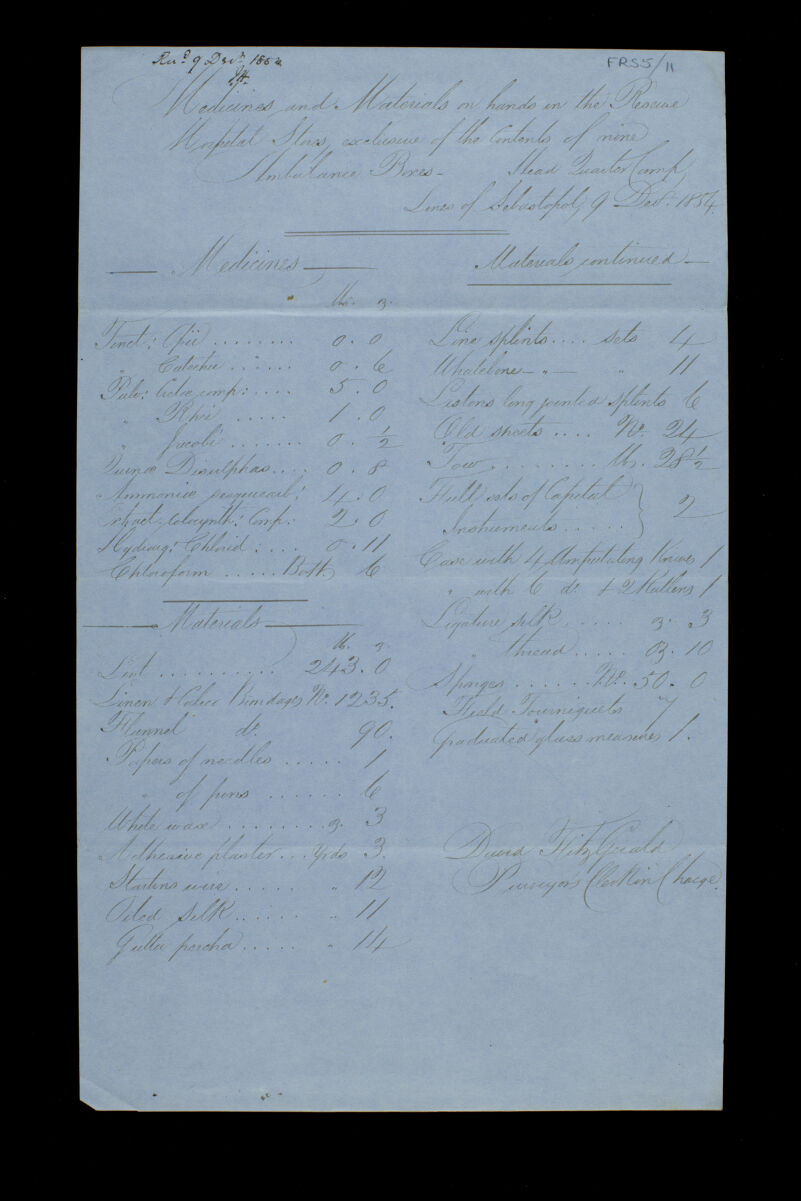 Recd. 9 Decr. 1854
FRS5/11
Medicines and Materials on hands in the Reserve
Hospital Stores, exclusive of the Contents of nine
Ambulance Boxes – Head Quarter Camp
Lines of Sebastopol, 9 Decr. 1854.
Medicines
lb. z.
Tinct: Opii ........ 0 . 0
" Catechu ...... 0 . 6
Pulv: Cretæ comp: .... 5 . 0
" Rhei ...... 1 . 0
" Jacobi ....... 0 . ½
Quinæ Disulphas.... 0 . 8
Ammoniæ sesquicarb: 4 . 0
Extract: Colocynth: Comp: 2 . 0
Hydrarg: Chlorid: .... 0 . 11
Chloroform ..... Bott. 6
Materials
lb. z.
Lint .......... 243 . 0
Linen & Calico Bandages No. 1235.
Flannel do. 90.
Papers of needles ..... 1
" of pins ...... 6
White wax ........ z. 3
Adhesive plaster... Yrds 3.
Startins wire...... " 12
Oiled silk...... " 11
Gutta percha..... " 14
Materials continued –
Line splints.... sets 4
Whalebone – " – " 11
Listons long jointed splints 6
Old sheets .... No. 24
Tow ......... lb. 28½
Full sets of Capital
Instruments ..... } 2
Case with 4 Amputating Knives 1
" with 6 do. & 2 Kallens 1
Ligature silk ..... z. 3
" thread..... oz. 10
Sponges ...... No. 50 . 0
Field Tourniquets 7
Graduated glass measures 1.
David FitzGerald
Purveyor's Clerk in Charge.